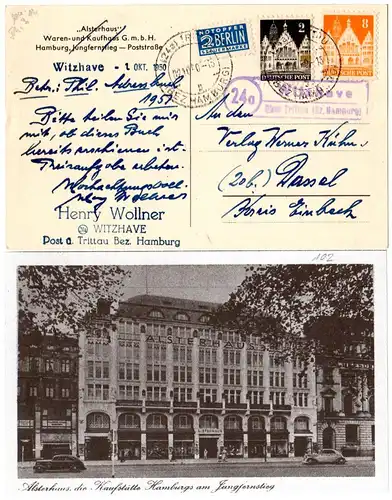 „Alsterhaus"
Waren-und Kaufhaus G. m. b. H.
Hamburg, Jungfernstieg – Poststraße
Witzhave - 1. OKT. 1950
Betr.: Phil. Adressbuch
1951
Bitte teilen Sie mir
mit, ob dieses Buch
bereits erschienen ist.
Preisaufgabe erbeten.
Hochachtungsvoll
Henry Wollner
Henry Wollner
WITZHAVE
Post a. Trittau Bez. Hamburg
NOTOPFER
2 BERLIN
STEUERMARKE
2
DEUTSCHE POST
8
DEUTSCHE POST
(BEZ HAMBURG)
24a
Post Trittau (Bz. Hamburg)
An den
Verlag Werner Kühn
(20b) Dassel
Kreis Einbeck
102
ALSTERHAUS
Alsterhaus, die Kaufstätte Hamburgs am Jungfernstieg